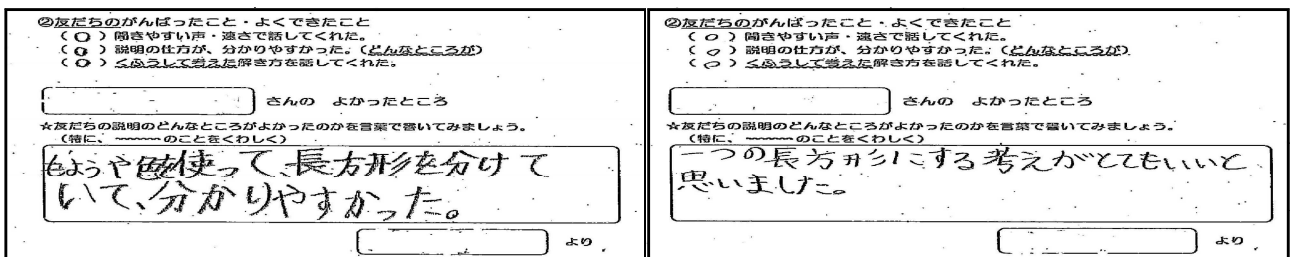 ②友だちのがんばったこと・よくできたこと
（○）聞きやすい声・速さで話してくれた。
（○）説明の仕方が、分かりやすかった。（どんなところが）
（○）くふうして考えた解き方を話してくれた。
さんの よかったところ
☆友だちの説明のどんなところがよかったのかを言葉で書いてみましょう。
（特に、〰〰のことをくわしく）
もようや色使って、長方形を分けて
いて、分かりやすかった。
より
②友だちのがんばったこと・よくできたこと
（○）聞きやすい声・速さで話してくれた。
（○）説明の仕方が、分かりやすかった。（どんなところが）
（○）くふうして考えた解き方を話してくれた。
さんの よかったところ
☆友だちの説明のどんなところがよかったのかを言葉で書いてみましょう。
（特に、〰〰のことをくわしく）
一つの長方形にする考えがとてもいいと
思いました。
より